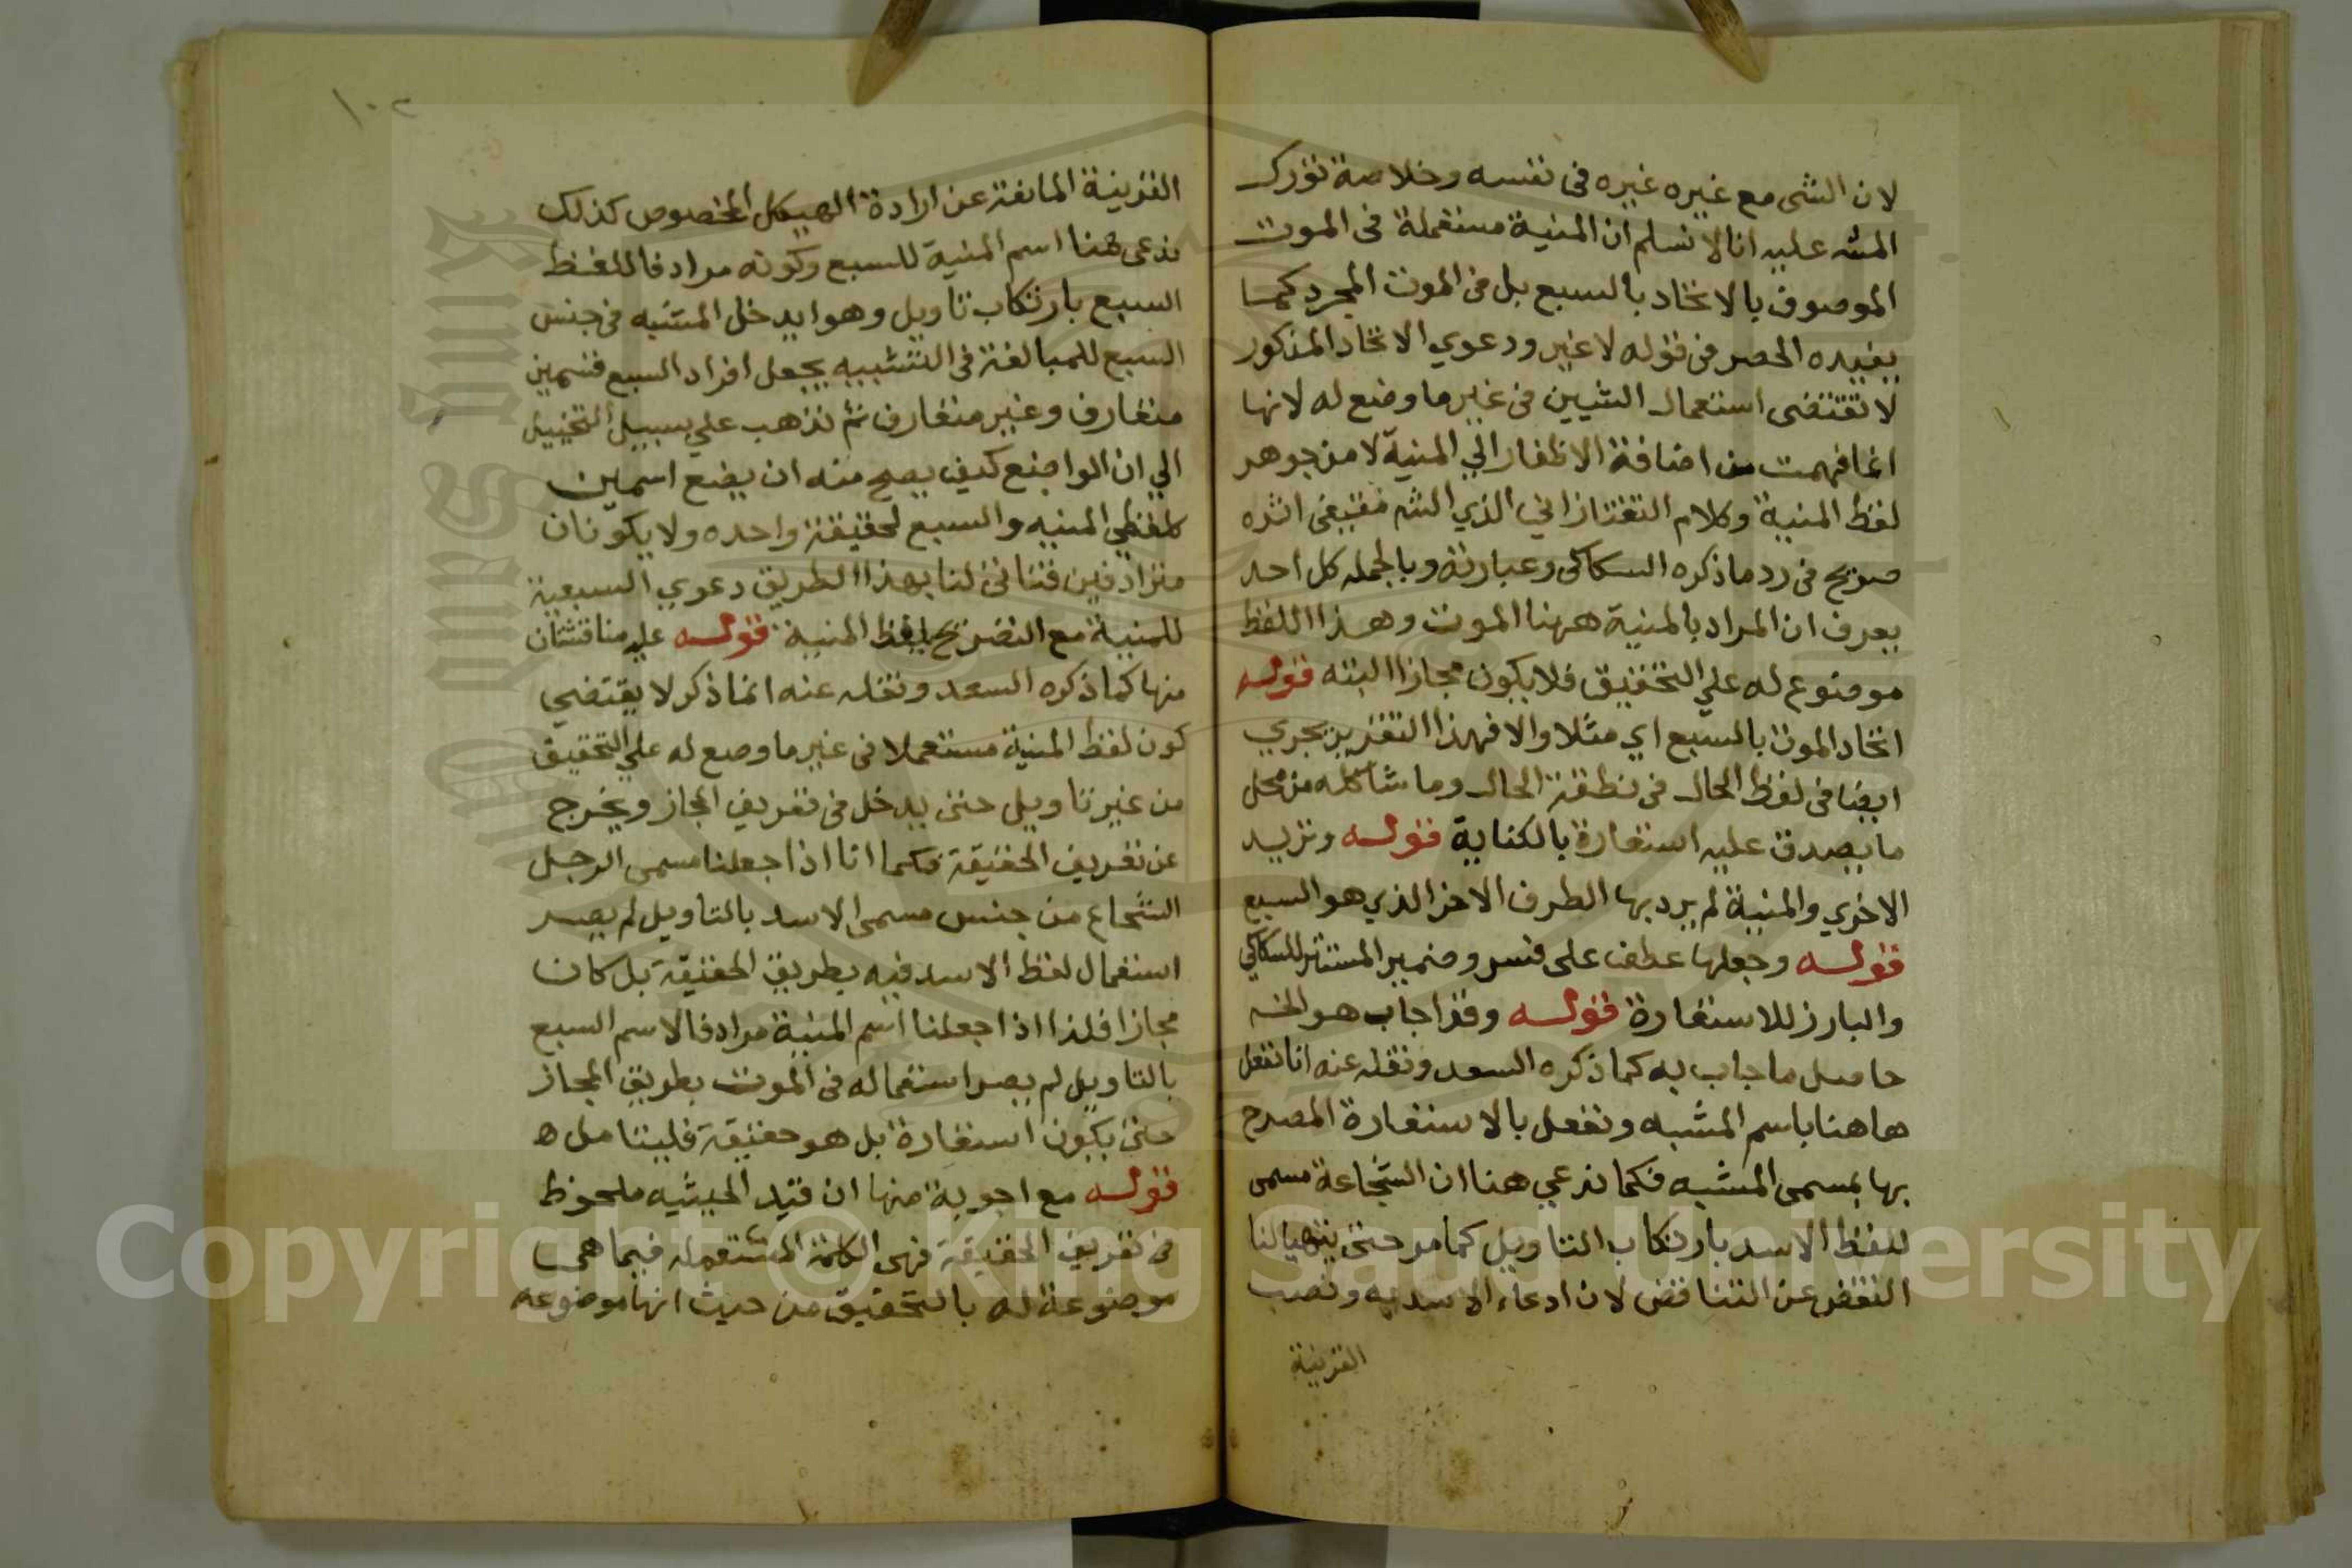 لان الشى مع غيره غيره فى نفسه وخلاصة تورك
المش عليه انا لا نسلم ان المنية مستعملة فى الموت
الموصوف بالاتحاد بالسبع بل فى الموت المجرد كما
يفيده الحصر فى قوله لا غير ودعوي الاتحاد المذكور
لا تقتضى استعمال الشيين فى غير ما وضع له لانها
انما فهمت من اضافة الاظفار الي المنية لا من جوهر
لفظ المنية وكلام التفتازاني الذي الش مقتفى اثره
صريح فى رد ما ذكره السكاكى وعبارته وبالجمله كل احد
يعرف ان المراد بالمنية ههنا الموت وهذا اللفظ
موضوع له علي التحقيق فلا يكون مجازا البته قوله
اتحاد الموت بالسبع اي مثلا والا فهذا التقرير يجري
ايضا فى لفظ الحال فى نطقت الحال وما شاكله من محل
ما يصدق عليه استعارة بالكناية قوله وتريد
الاخري والمنية لم يرد بها الطرف الاخر الذي هو السبع
قوله وجعلها عطف على فسر وضمير المستتر للسكاكي
والبارز للاستعارة قوله وقد اجاب هو الخ
حاصل ما جاب به كما ذكره السعد ونقله عنه انا نفعل
هاهنا باسم المشبه ونفعل بالاستعارة المصرح
بها بمسمى المشبه فكما ندعي هنا ان الشجاعة مسمى
للفظ الاسد بارتكاب التاويل كما مر حتى يتهيا لنا
التفصى عن التناقض لان ادعاء الاسديه ونصب
القرينة
١٠٢
القرينة المانعة عن ارادة الهيكل المخصوص كذلك
ندعى هنا اسم المنية للسبع وكونه مرادفا للفظ
السبع بارتكاب تاويل وهو ايدخل المشبه فى جنس
السبع للمبالغة فى التشبيه بجعل افراد السبع قسمين
متعارف وغير متعارف ثم نذهب علي سبيل التخييل
الي ان الواضع كيف يصح منه ان يضع اسمين
كلفظي المنيه والسبع لحقيقة واحده ولا يكونان
مترادفين فتاتى لنا بهذا الطريق دعوي السبعية
للمنية مع التصريح بلفظ المنية قوله عليه مناقشتان
منها كما ذكره السعد ونقله عنه ان ما ذكر لا يقتضي
كون لفظ المنية مستعملا فى غير ما وضع له علي التحقيق
من غير تاويل حتى يدخل فى تعريف المجاز ويخرج
عن تعريف الحقيقة فكما انا اذا جعلنا مسمى الرجل
الشجاع من جنس مسمى الاسد بالتاويل لم يصر
استعمال لفظ الاسد فيه بطريق الحقيقة بل كان
مجازا فلذا اذا جعلنا اسم المنية مرادفا لاسم السبع
بالتاويل لم يصر استعماله فى الموت بطريق المجاز
حتى يكون استعارة بل هو حقيقة فليتامل ه
قوله مع اجوبة منها ان قيد الحيثيه ملحوظ
فى تعريف الحقيقة فهى الكلمة المستعمله فيما هى
موضوعة له بالتحقيق من حيث انها موضوعه
Copyright © King Saud University